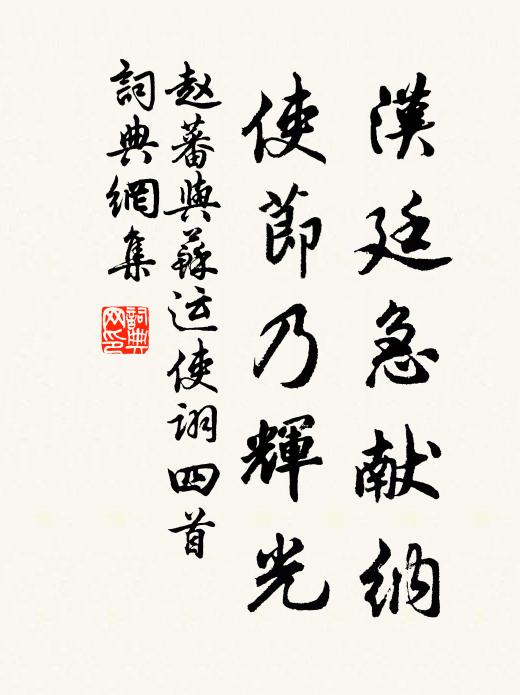 漢廷急献納
使節乃輝光
赵蕃與蘇运使詡四首
詞典網集
詞典网印